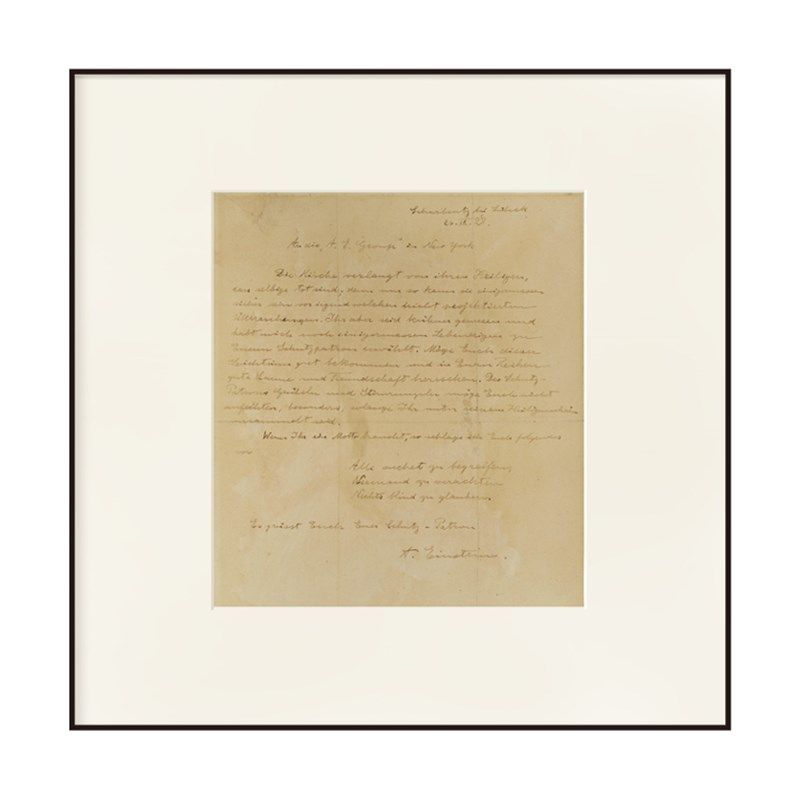 Scharbeutz bei Lübeck
An die „A. E. Group" in New York
Die Kirche verlangt von ihren Heiligen,
dass selbige tot sind, denn nur so kann sie einigermassen
sicher sein vor irgend welchen
Überraschungen. Ihr aber seid kühner gewesen und
habt mich noch einigermassen Lebendigen zu
Eurem Schutzpatron erwählt. Möge Euch dieser
Leichtsinn gut bekommen und in Euren Reihen
gute Laune und Freundschaft herrschen. Des Schutz-
Patrons möge Euch nicht
anfechten, besonders, solange Ihr unter
versammelt seid.
Wenn Ihr ein Motto braucht, so schlage ich Euch folgendes
vor
Alle suchet zu begreifen,
Niemand zu verachten
Nichts blind zu glauben.
Es grüsst Euch Euer Schutz-Patron
A. Einstein.